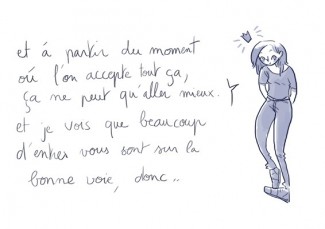 et à partir du moment
où l'on accepte tout ça,
ça ne peut qu'aller mieux.
et je vois que beaucoup
d'entres vous sont sur la
bonne voie, donc..